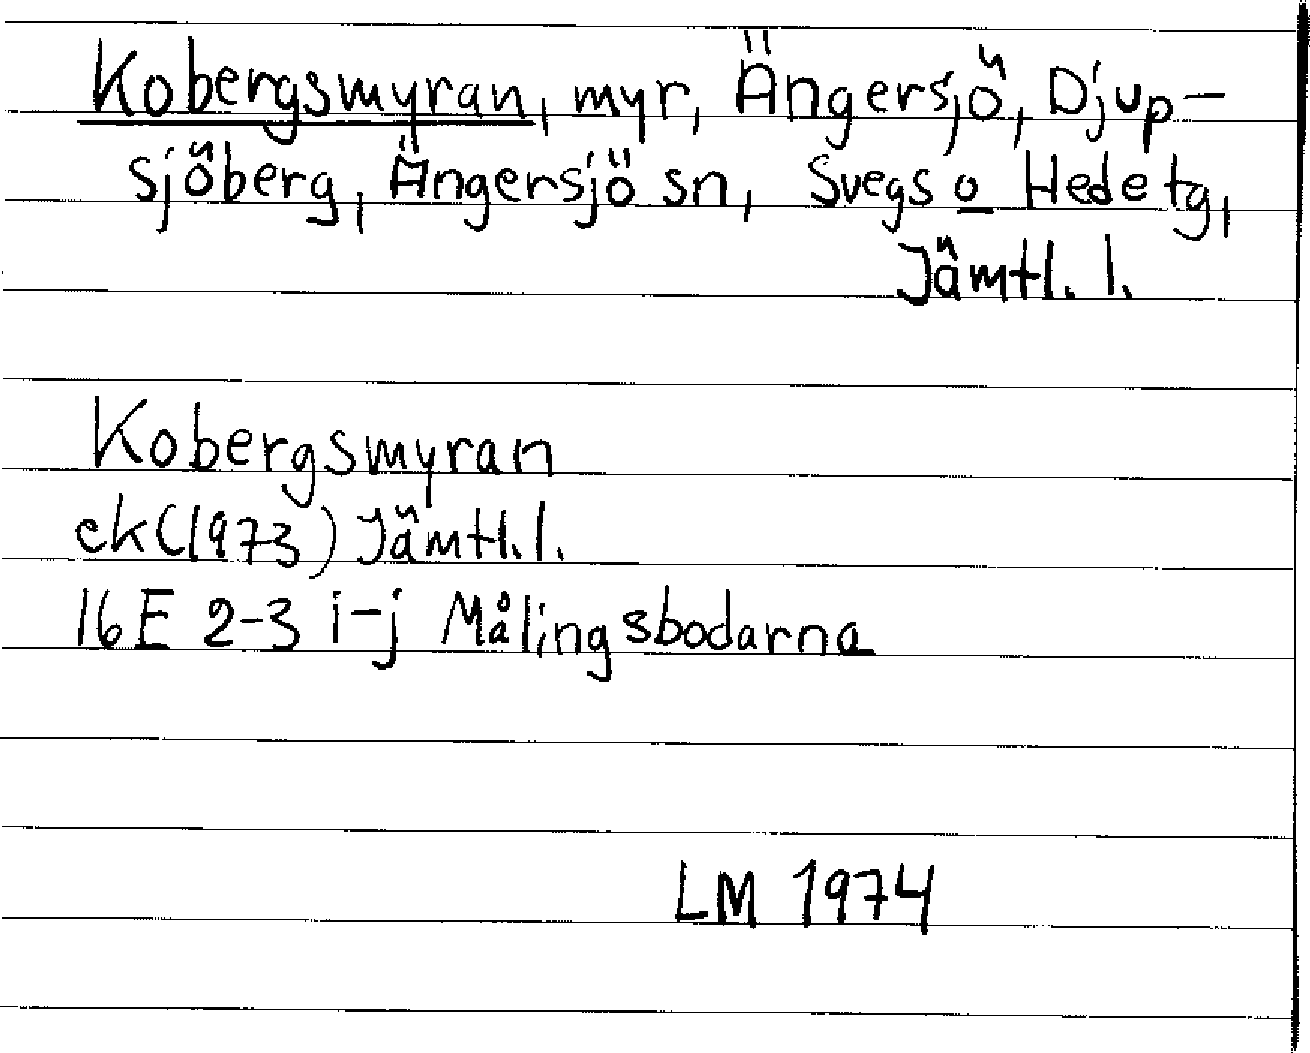 Kobergsmyran, myr, Ängersjö, Djup-
sjöberg, Ängersjö sn, Svegs o Hede tg,
Jämtl. l.
Kobergsmyran
ek (1973) Jämtl. l.
16E 2-3 i-j Målingsbodarna
LM 1974